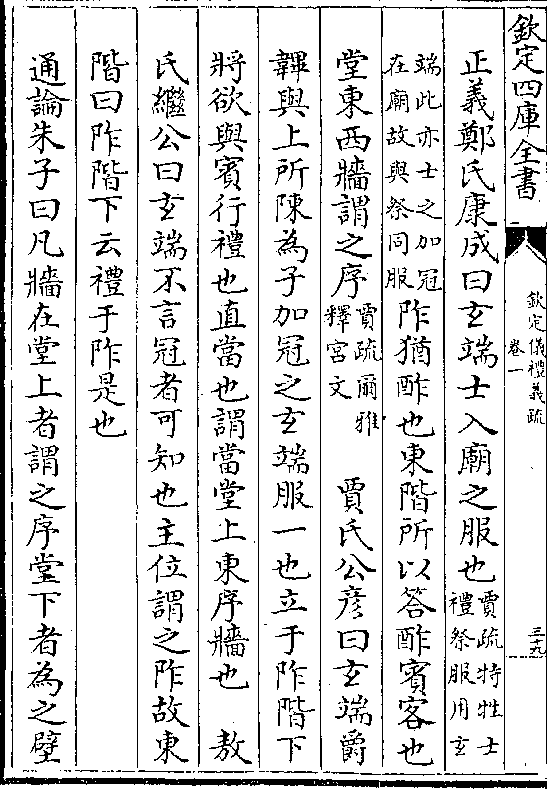 欽定四庫全書
欽定儀禮義疏
卷一
三十九
正義鄭氏康成曰玄端士入廟之服也賈疏特牲士禮祭服用玄
端此亦士之加冠在廟故與祭同服阼猶酢也東階所以答酢賓客也
堂東西牆謂之序賈疏爾雅釋宮文 賈氏公彦曰玄端爵
韠與上所陳為子加冠之玄端服一也立于阼階下
將欲與賓行禮也直當也謂當堂上東序牆也 敖
氏繼公曰玄端不言冠者可知也主位謂之阼故東
階曰阼階下云禮于阼是也
通論朱子曰凡牆在堂上者謂之序堂下者為之壁